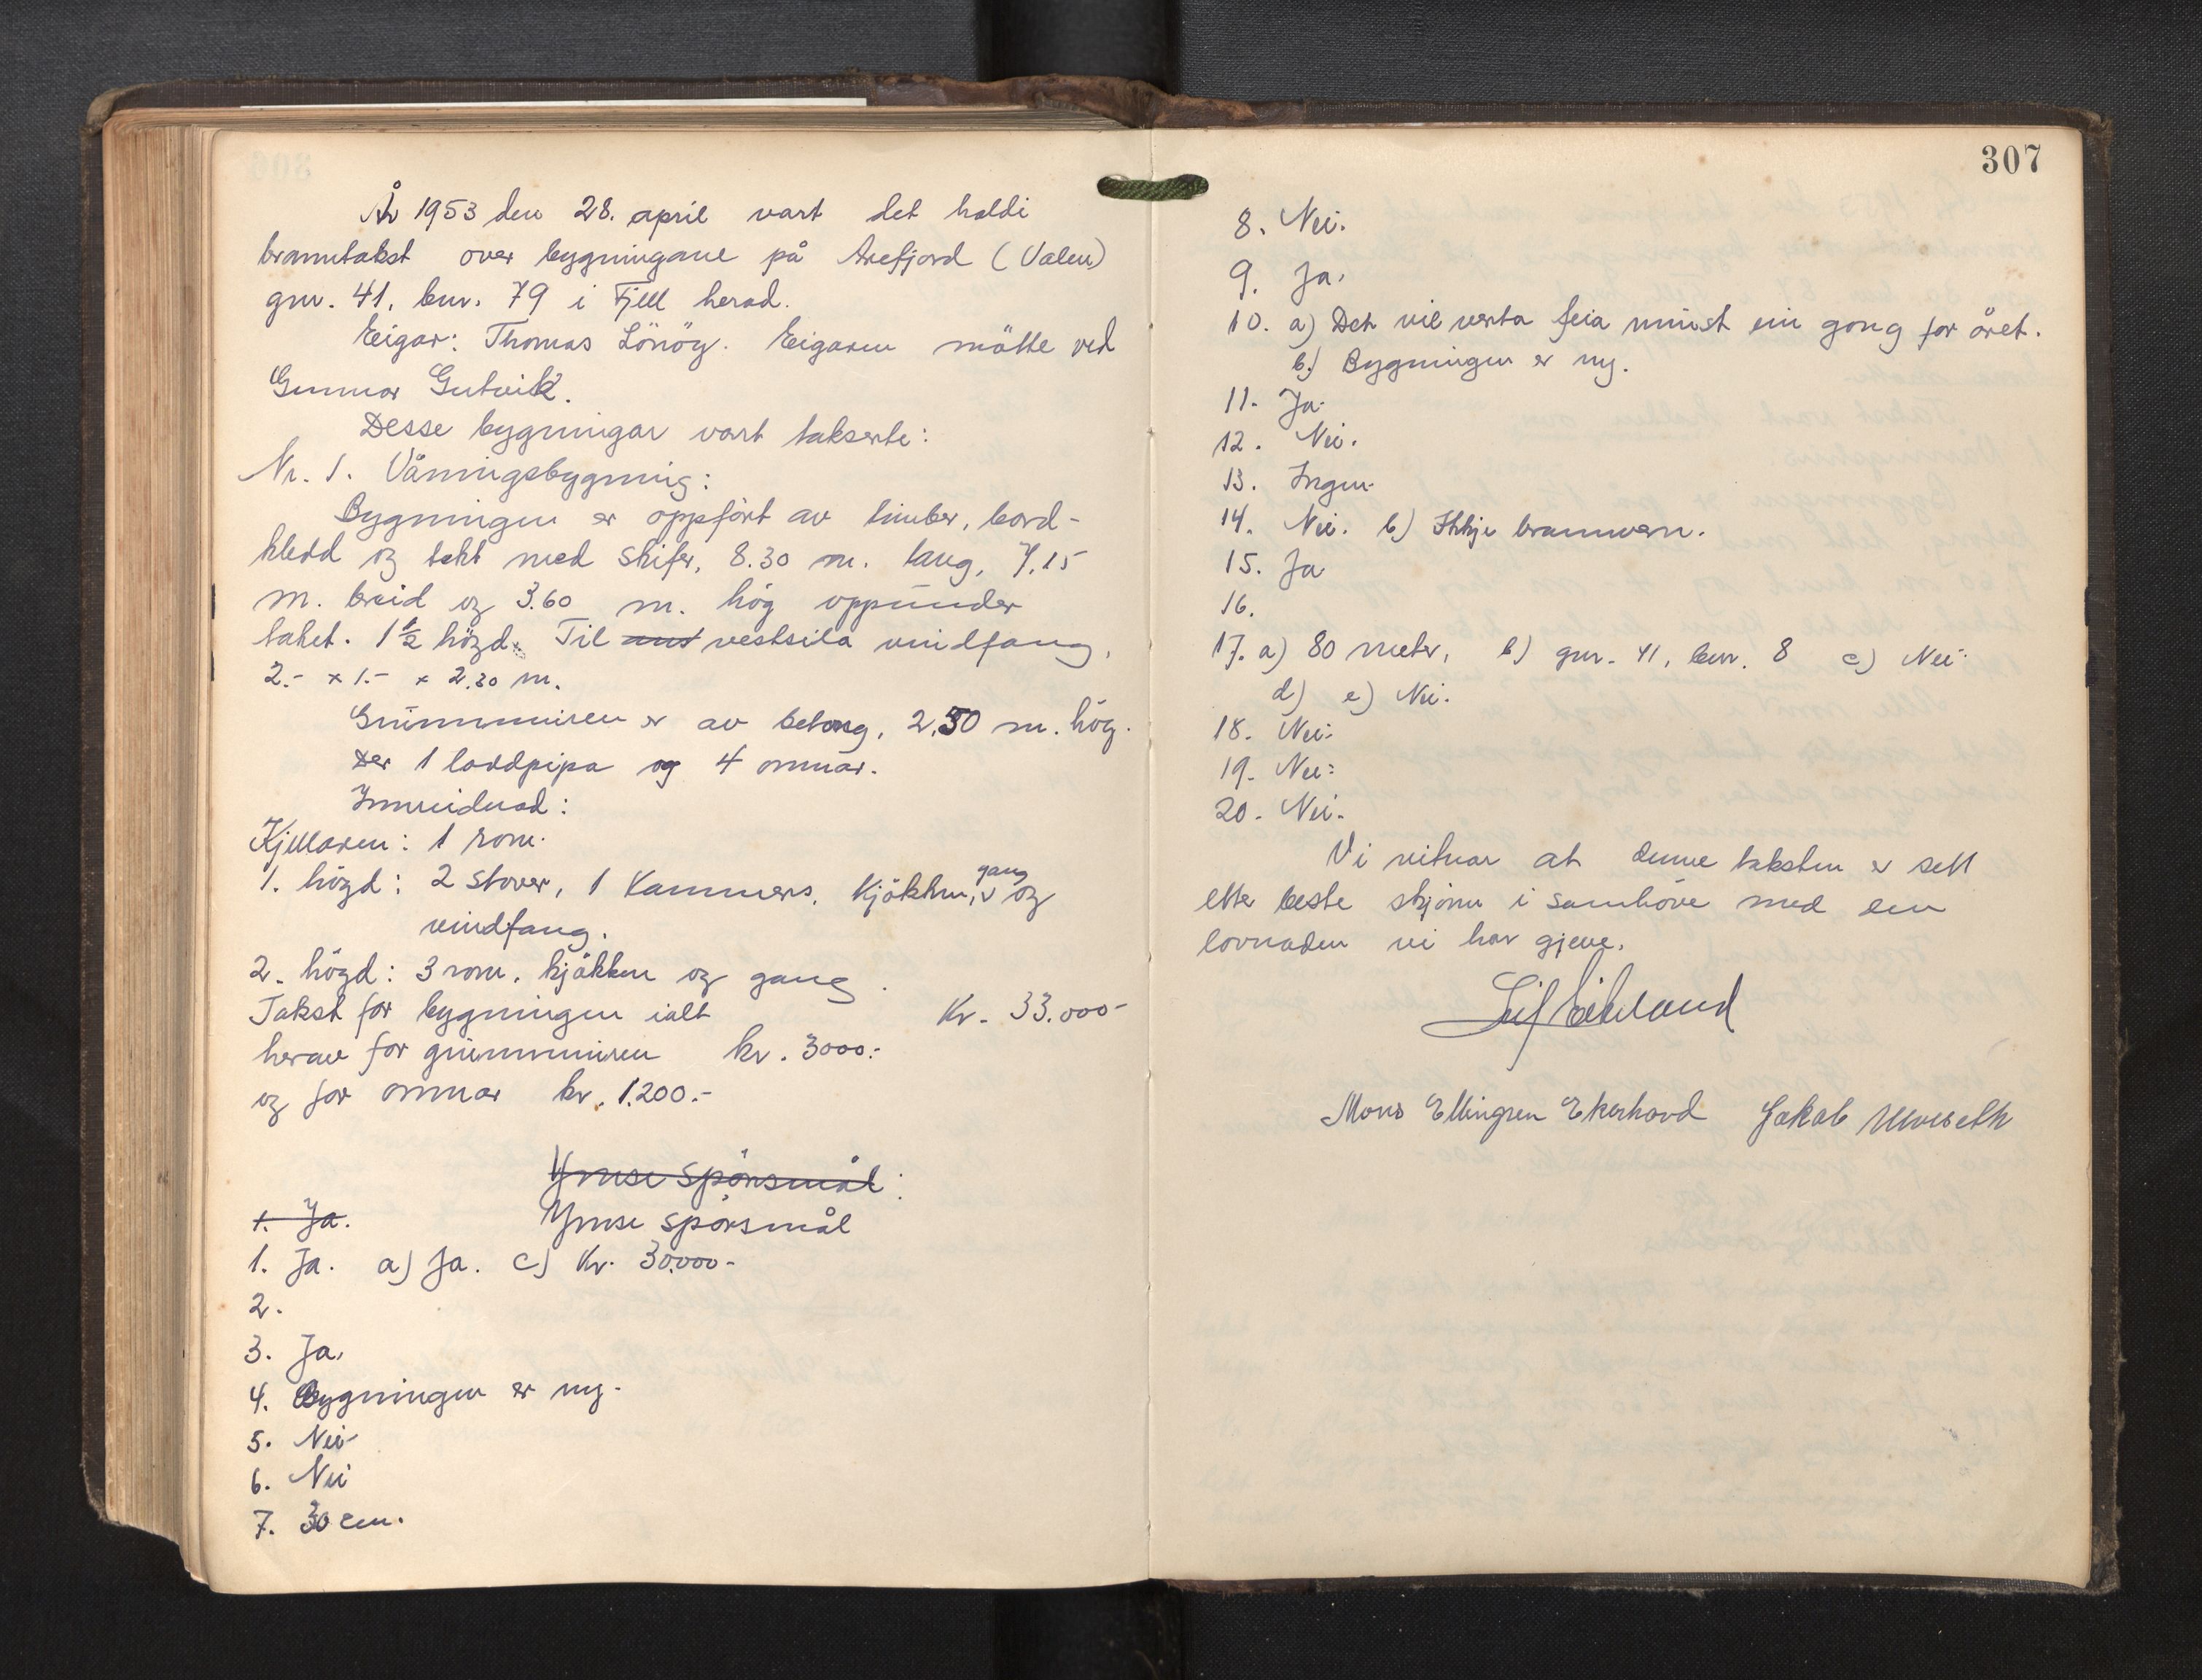 År 1953 den 28. april vart det haldi
branntakst over bygningane på Arefjord (Valen)
gnr. 41, bnr. 79 i Fjell herad.
Eigar: Thomas Lönöy. Eigaren mötte ved
Gunnar Gutvik.
Desse bygningar vart takserte:
Nr. 1. Våningsbygning:
Bygningen er oppfört av timber, bord-
kledd og tekt med skifer, 8.30 m. lang, 7.15
m. breid og 3.60 m. hög oppunder
taket. 1½ högd. Til aust vestsida vindfang,
2.- x 1.- x 2.20 m.
Grunnmuren er av betong, 2.50 m. hög.
Der 1 loddpipa og 4 omnar.
Innreidnad:
Kjellaren: 1 rom.
1. högd: 2 stover, 1 Kammers, kjökken, gang og
vindfang.
2. högd: 3 rom, kjökken og gang.
Takst for bygningen ialt Kr. 33.000-
herav for grunnmuren kr. 3000.-
og for omnar kr. 1.200.-
Ymse spörsmål:
1. Ja.
Ymse spörsmål
1. Ja. a) Ja. c) Kr. 30.000-
2.
3. Ja.
4. Bygningen er ny.
5. Nei
6. Nei
7. 30 cm.
307
8. Nei.
9. Ja.
10. a) Det vil verta feia minst ein gong for året.
b) Bygningen er ny.
11. Ja.
12. Nei.
13. Ingen.
14. Nei. b) Ikkje brannvern.
15. Ja
16.
17. a) 80 meter, b) gnr. 41, bnr. 8 c) Nei.
d) e) Nei.
18. Nei.
19. Nei.
20. Nei.
Vi vitnar at denne taksten er sett
etter beste skjönn i samhöve med den
lovnaden vi har gjeve.
Leif Eikeland
Mons Ellingsen Ekerhovd Jakob